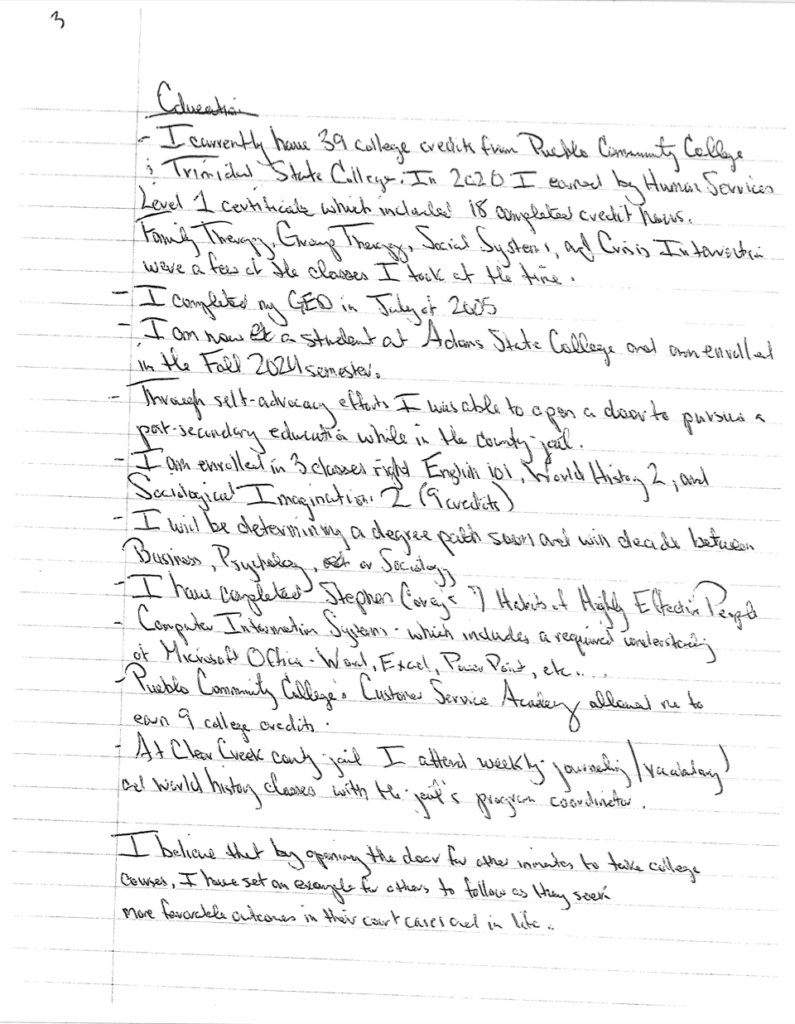 3
Education
- I currently have 39 college credits from Pueblo Community College
& Trinidad State College. In 2020 I earned by Human Services
Level 1 certificate which included 18 completed credit hours.
Family Therapy, Group Therapy, Social Systems, and Crisis Intervention
were a few of the classes I took at the time.
- I completed my GED in July of 2005
- I am now a student at Adams State College and am enrolled
in the Fall 2024 semester.
- Through self-advocacy efforts I was able to open a door to pursue a
post-secondary education while in the county jail.
- I am enrolled in 3 classes right English 101, World History 2, and
Sociological Imagination. 2 (9 credits)
- I will be determining a degree path soon and will decide between
Business, Psychology, or Sociology
- I have completed Stephen Covey's 7 Habits of Highly Effective People
- Computer Information Systems - which includes a required understanding
of Microsoft Office - Word, Excel, PowerPoint, etc....
- Pueblo Community College's Customer Service Academy allowed me to
earn 9 college credits.
- At Clear Creek county jail I attend weekly journaling/vocabulary/
and world history classes with the jail's program coordinator.
I believe that by opening the door for other inmates to take college
courses, I have set an example for others to follow as they seek
more favorable outcomes in their court cases and in life.